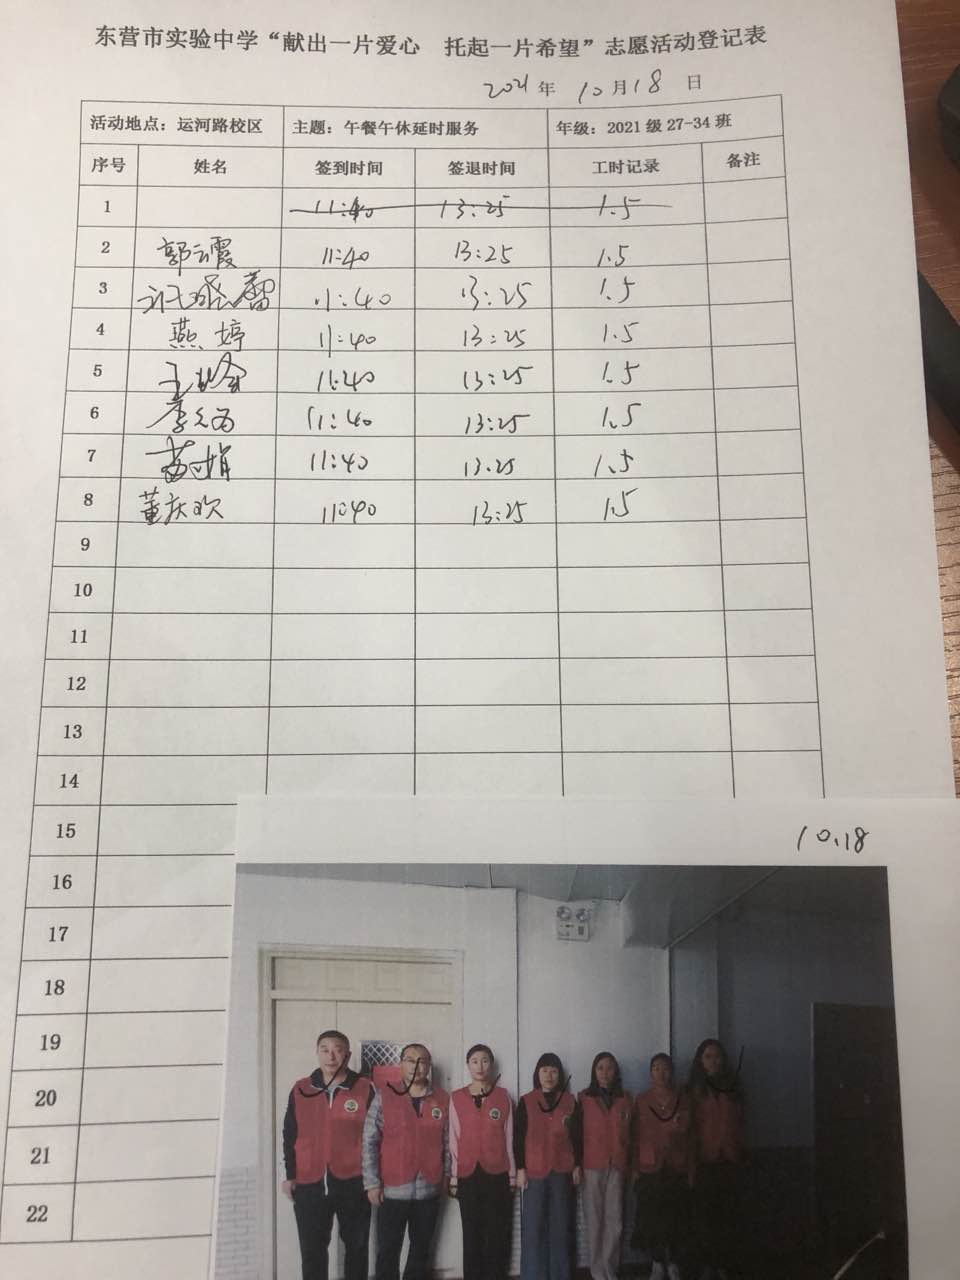 东营市实验中学“献出一片爱心 托起一片希望”志愿活动登记表
2021年 10月18日
活动地点：运河路校区 主题：午餐午休延时服务 年级：2021级27-34班
序号 姓名 签到时间 签退时间 工时记录 备注
1 11:40 13:25 1.5
2 郭云霞 11:40 13:25 1.5
3 11:40 13:25 1.5
4 燕婷 11:40 13:25 1.5
5 11:40 13:25 1.5
6 11:40 13:25 1.5
7 11:40 13.25 1.5
8 董庆欢 11:40 13:25 1.5
9
10
11
12
13
14
15
16
17
18
19
20
21
22
10.18